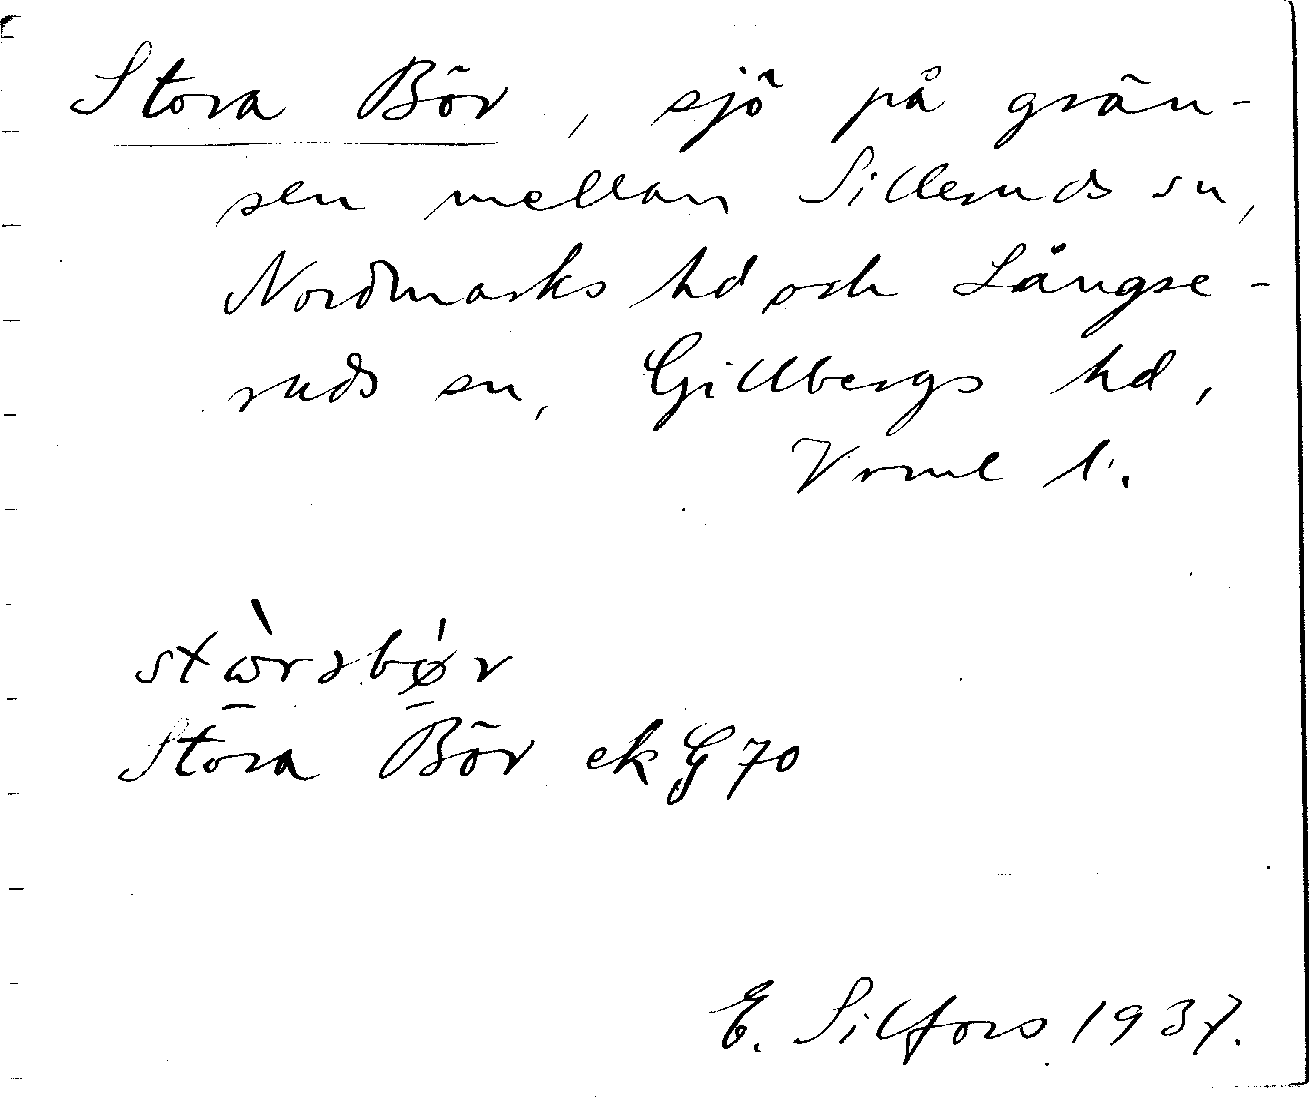 Stora Bör, sjö på grän-
sen mellan Silleruds sn,
Nordmarks hd och Långse-
ruds sn, Gillbergs hd,
Vrml l.
Stora Bör ek G 70
E. Silfors 1937.